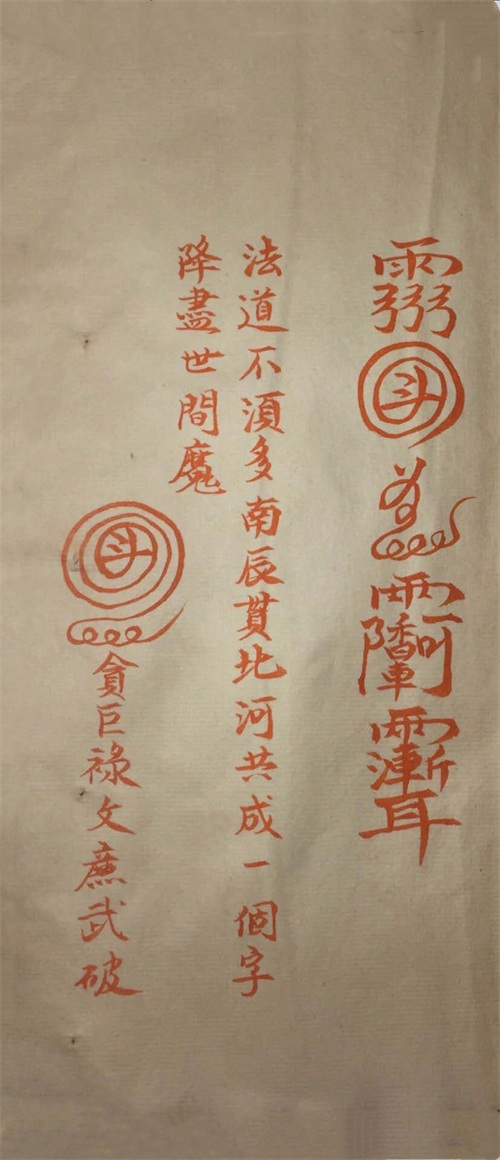 法道不湏多南辰貫北河共成一個字
降盡世間魔
貪巨祿文廉武破